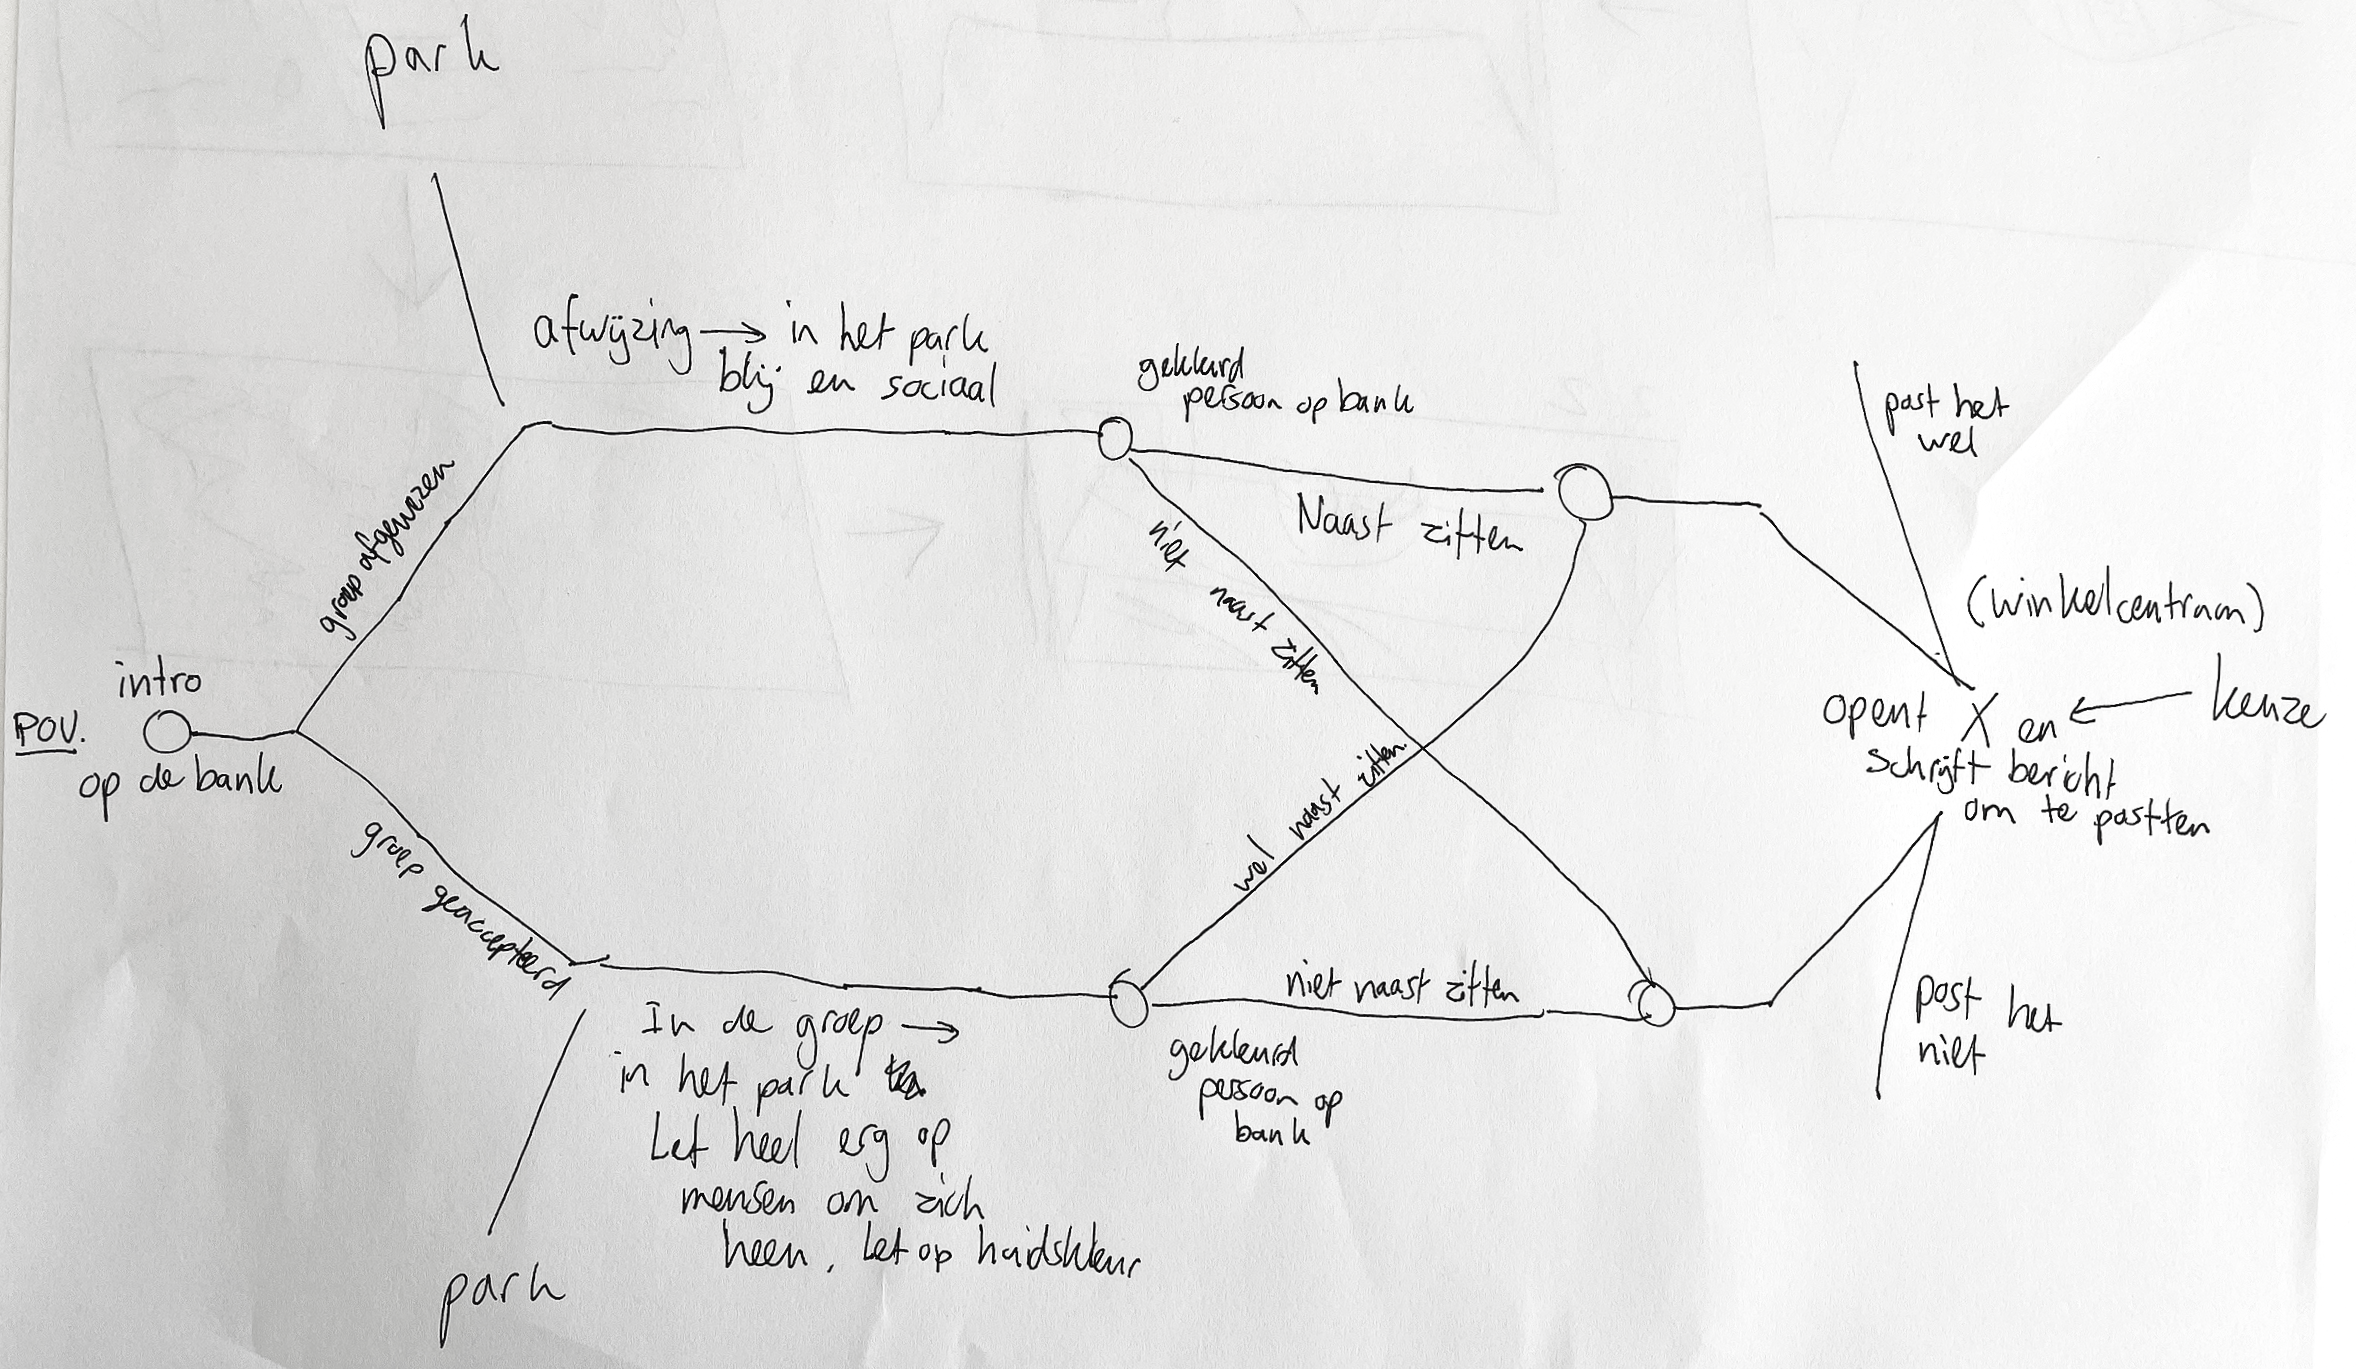 park
afwijzing → in het park
blij en sociaal
gekleurd
persoon op bank
post het
wel
groep afgewezen
Naast zitten
niet naast zitten
(winkelcentrum)
intro
POV.
op de bank
opent X en ← keuze
schrijft bericht
om te postten
wel naast zitten.
groep geaccepteerd
niet naast zitten
In de groep →
in het park
Let heel erg op
mensen om zich
heen, Let op huidskleur
gekleurd
persoon op
bank
post het
niet
park